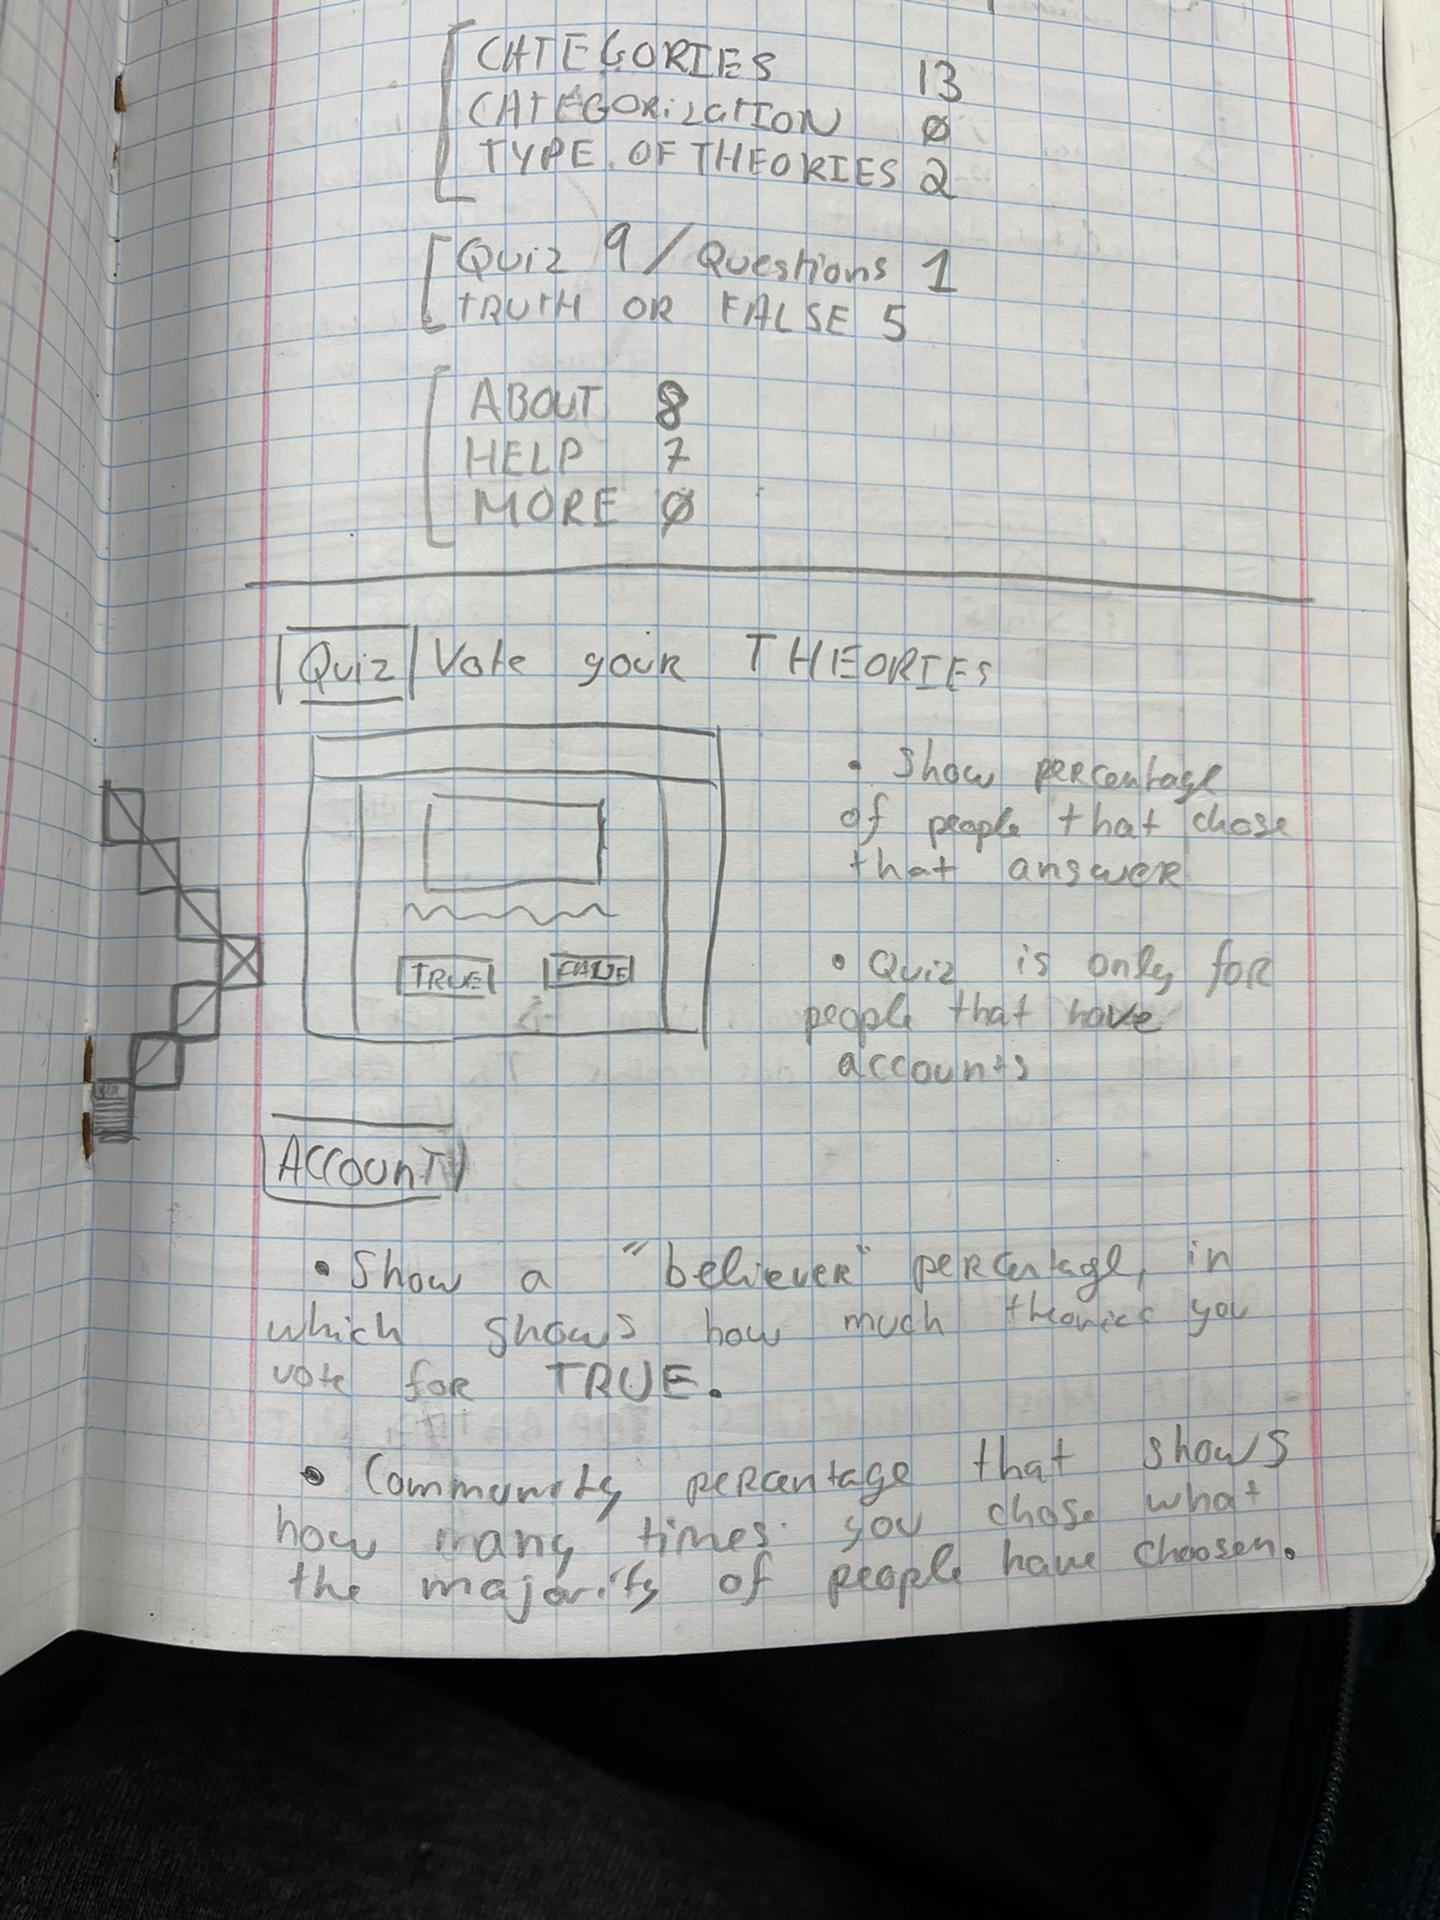 CATEGORIES 13
CATEGORIZATION 0
TYPE OF THEORIES 2
Quiz 9 / Questions 1
TRUTH OR FALSE 5
ABOUT 8
HELP 7
MORE 0
Quiz Vote your THEORIES
• Show percentage
of people that chose
that answer
TRUE FALSE
• Quiz is only for
people that have
accounts
Account
• Show a "believer" percentage, in
which shows how much theories you
vote for TRUE.
• Community percentage that shows
how many times you chose what
the majority of people have choosen.